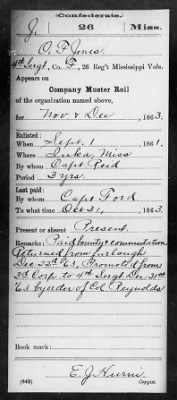 (Confederate.)
J. 26 Miss.
O. F. Jones
4th Sergt, Co. F, 26 Reg't Mississippi Vols.
Appears on
Company Muster Roll
of the organization named above,
for Nov & Dec, 1863.
Enlisted:
When Sept. 1, 1861.
Where Iuka, Miss
By whom Capt. Reid
Period 3 yrs.
Last paid:
By whom Capt Ford
To what time Oct 31, 1863.
Present or absent Present
Remarks: Paid bounty & commutation
Returned from furlough
Dec 22d 63, Promoted from
3d Corp to 4th Sergt Dec 31st
63 by order of Col Reynolds
Book mark:
E. J. Hurm
(642) Copyist.